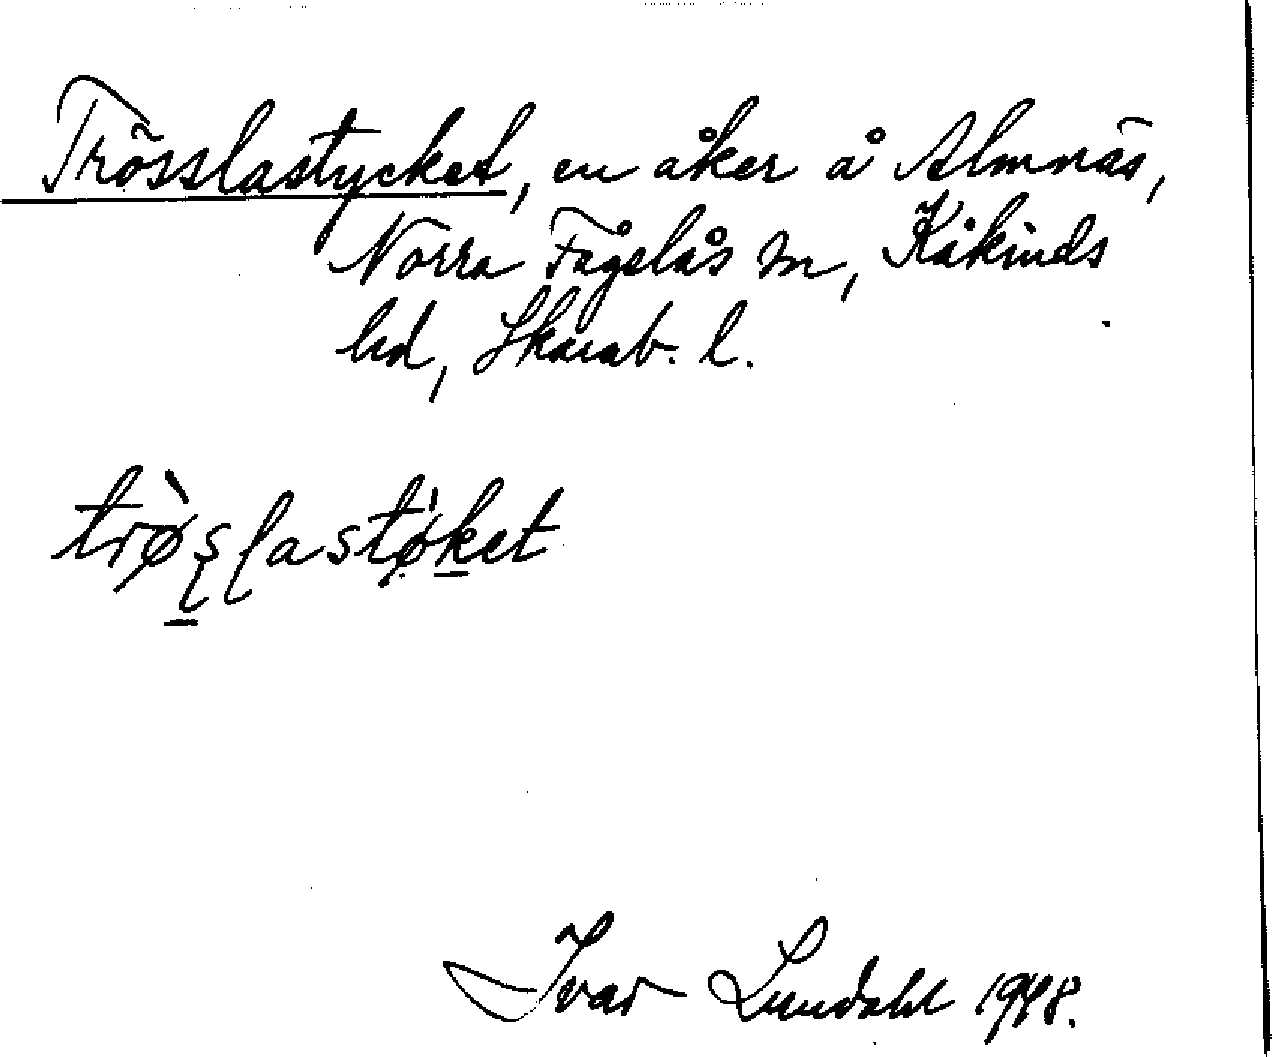 Trösslastycket, en åker å Almnäs,
Norra Fågelås sn, Kåkinds
hd, Skarab. l.
trø̀slastø̍ket
Ivar Lundahl 1948.